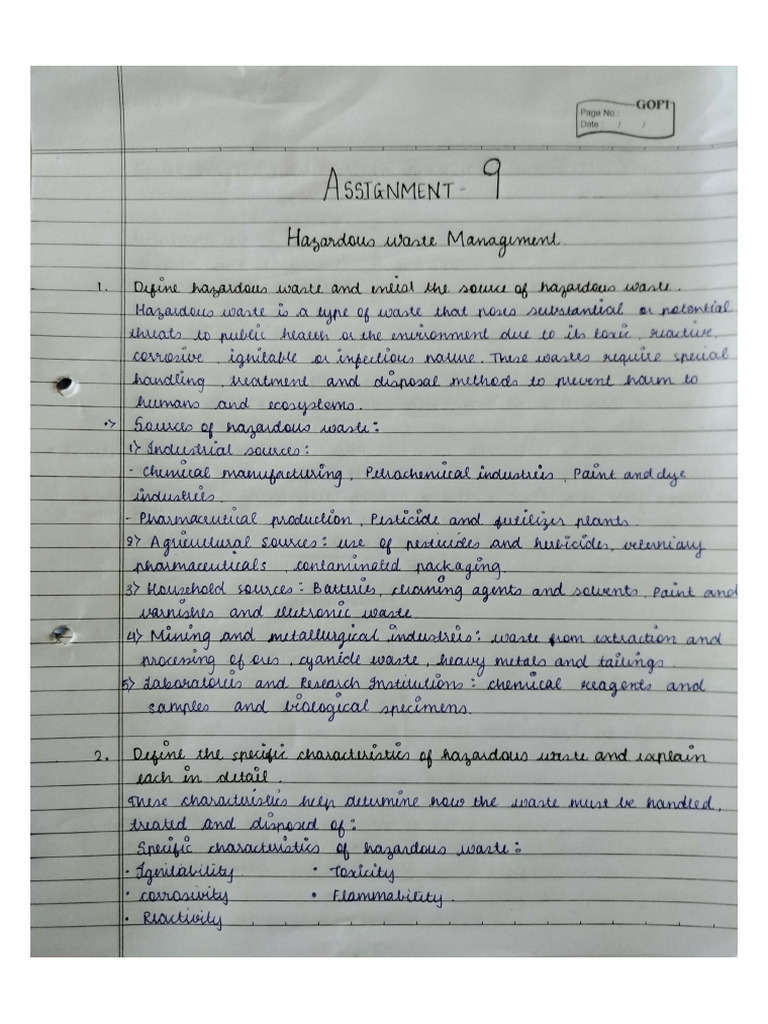 GOPI
Page No.:
Date : / /
ASSIGNMENT - 9
Hazardous Waste Management
1. Define hazardous waste and enlist the source of hazardous waste.
Hazardous waste is a type of waste that poses substantial or potential
threats to public health or the environment due to its toxic, reactive,
corrosive, ignitable or infectious nature. These wastes require special
handling, treatment and disposal methods to prevent harm to
humans and ecosystems.
•> Sources of hazardous waste:
1> Industrial sources:
- Chemical manufacturing, Petrochemical industries, Paint and dye
industries.
- Pharmaceutical production, Pesticide and fertilizer plants.
2> Agricultural sources: use of pesticides and herbicides, veterniary
pharmaceuticals, contaminated packaging.
3> Household sources: Batteries, cleaning agents and solvents, Paint and
varnishes and electronic waste
4> Mining and metallurgical industries: waste from extraction and
processing of ores, cyanide waste, heavy metals and tailings.
5> Laboratories and Research Institutions: chemical reagents and
samples and biological specimens.
2. Define the specific characteristics of hazardous waste and explain
each in detail.
These characteristics help determine how the waste must be handled,
treated and disposed of:
Specific characteristics of hazardous waste:
• Ignitability • Toxicity
• corrosivity • Flammability.
• Reactivity